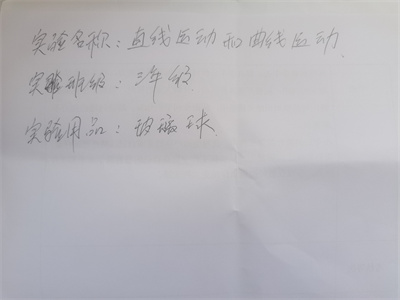 实验名称：直线运动和曲线运动
实验班级：三年级
实验用品：玻璃球